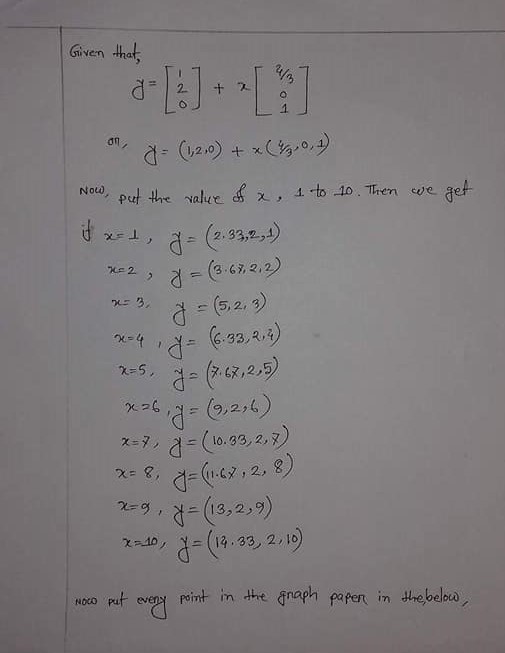 Given that,
y = [1 2 0] + x [4/3 0 1]
or, y = (1,2,0) + x (4/3,0,1)
Now, put the value of x, 1 to 10. Then we get
if x=1, y = (2.33,2,1)
x=2, y = (3.67,2,2)
x=3, y = (5,2,3)
x=4, y = (6.33,2,4)
x=5, y = (7.67,2,5)
x=6, y = (9,2,6)
x=7, y = (10.33,2,7)
x=8, y = (11.67,2,8)
x=9, y = (13,2,9)
x=10, y = (14.33,2,10)
Now put every point in the graph paper in the below,